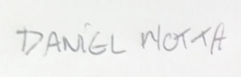 DANIEL MOTTA